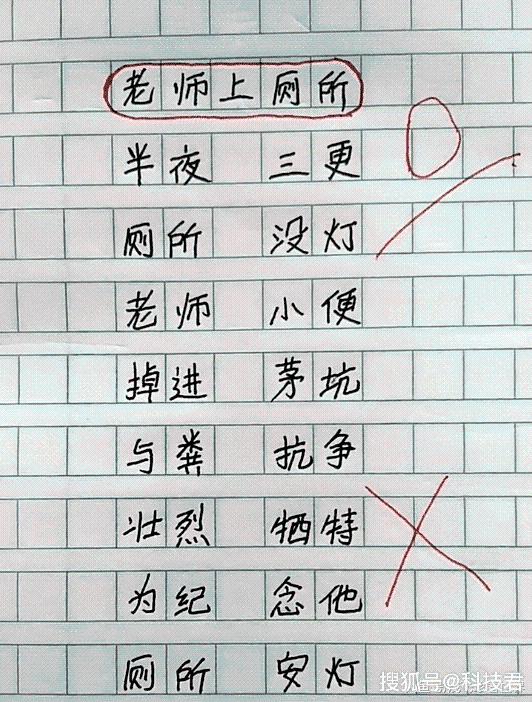 老师上厕所
0
半夜 三更
厕所 没灯
老师 小便
掉进 茅坑
与粪 抗争
壮烈 牺特
为纪 念他
厕所 安灯
搜狐号@科技君